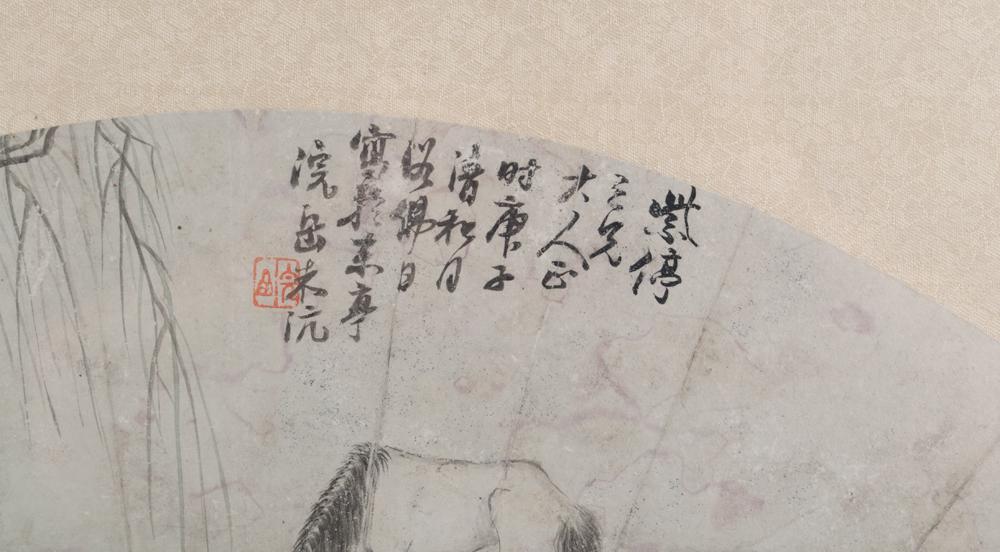 紫停
三兄
大人正
时庚子
清和月
浴佛日
寫於
亭
浣岳朱沅